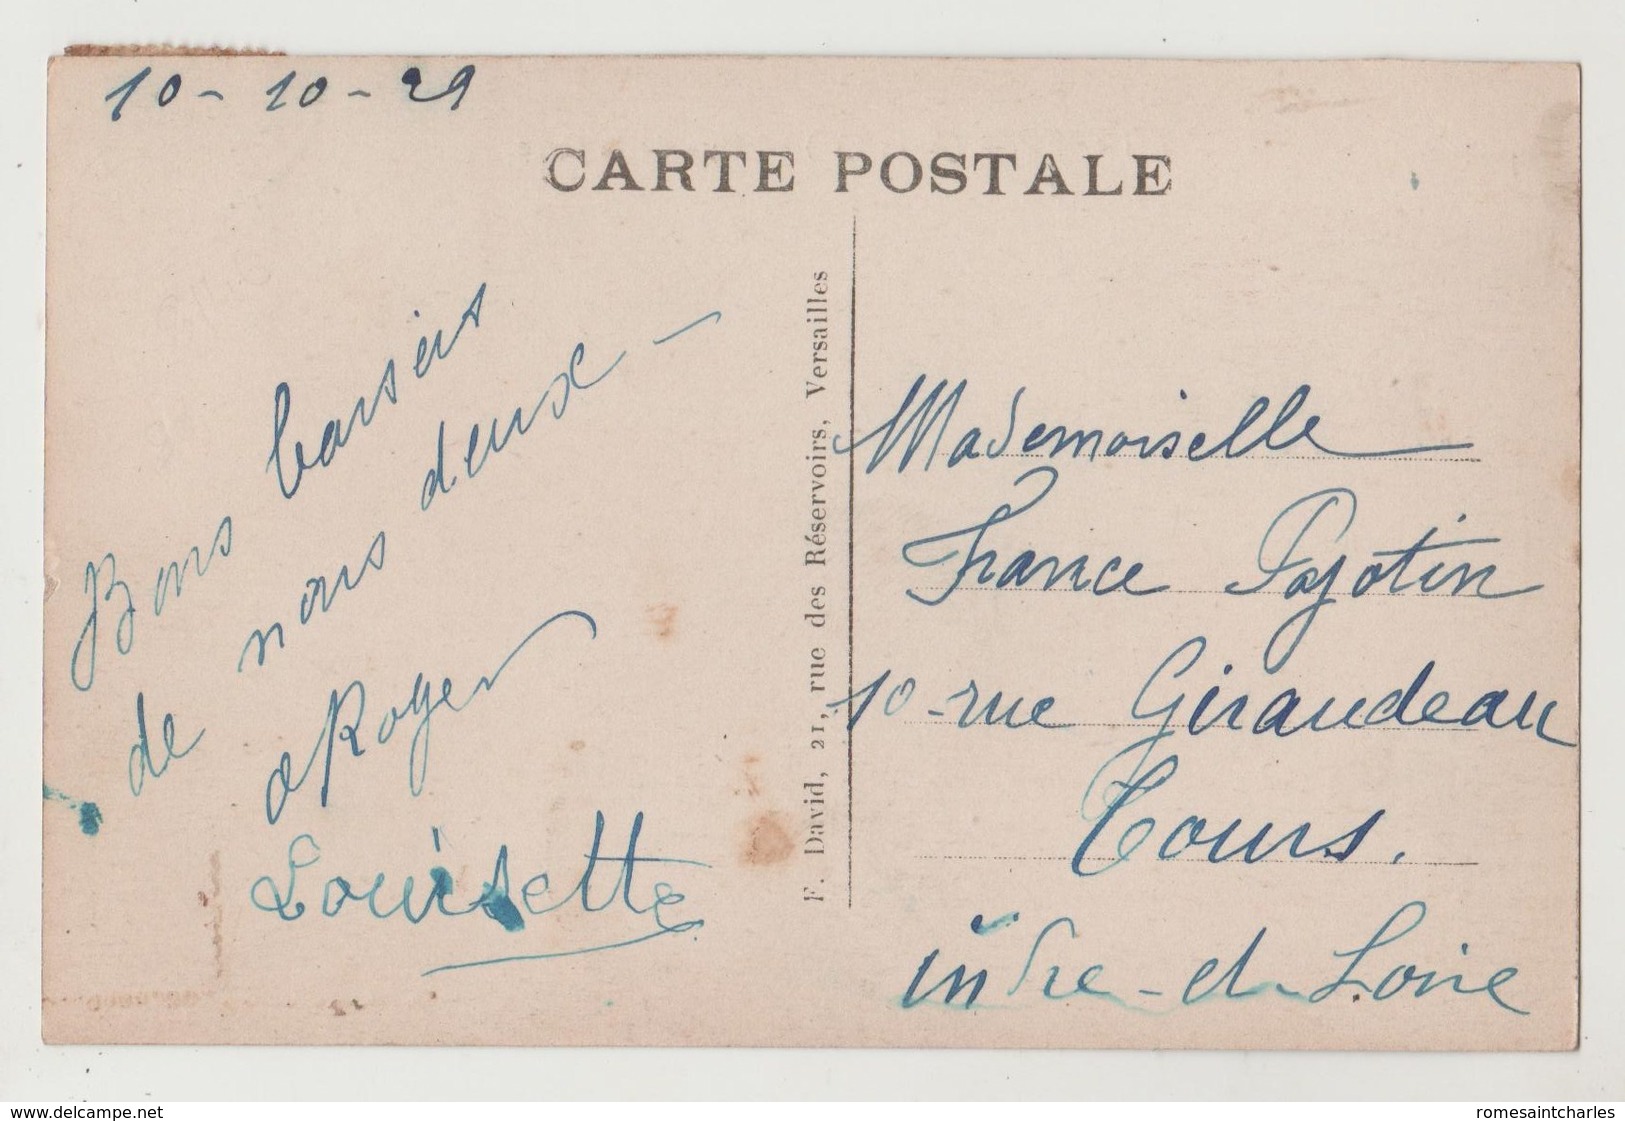 10 - 10 - 29
CARTE POSTALE
Bons baisers
de nous deux -
Roger
Louisette
F. David, 21, rue des Réservoirs, Versailles
Mademoiselle
France Pajotin
10 - rue Giraudeau
Tours.
indre - et - Loire
www.delcampe.net
romesaintcharles